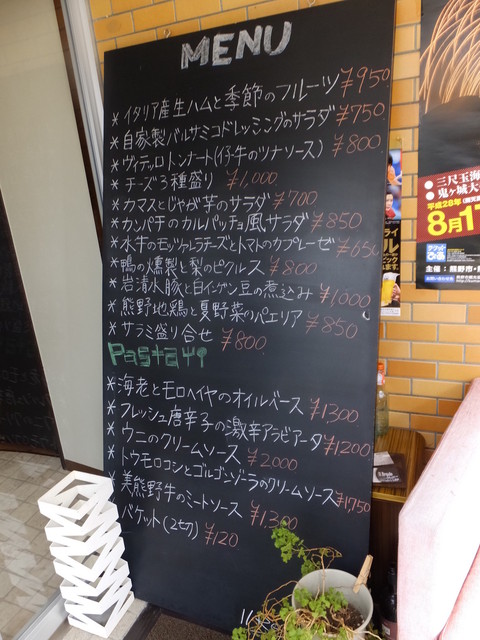 MENU
*イタリア産生ハムと季節のフルーツ ¥950
*自家製バルサミコドレッシングのサラダ ¥750
*ヴィテッロトンナート(仔牛のツナソース) ¥800
*チーズ3種盛り ¥1,000
*カマスとじゃが芋のサラダ ¥700
*カンパチのカルパッチョ風サラダ ¥850
*水牛のモッツァレラチーズとトマトのカプレーゼ ¥650
*鴨の燻製と梨のピクルス ¥800
*岩清水豚と白インゲン豆の煮込み ¥1000
*熊野地鶏と夏野菜のパエリア ¥850
*サラミ盛り合せ ¥800
Pasta
*海老とモロヘイヤのオイルベース ¥1300
*フレッシュ唐辛子の激辛アラビアータ ¥1200
*ウニのクリームソース ¥2000
*トウモロコシとゴルゴンゾーラのクリームソース ¥1,750
*美熊野牛のミートソース ¥1,300
*バケット(2切) ¥120
●三尺玉海
●鬼ヶ城大
平成28年
8月1
主催:熊野市・